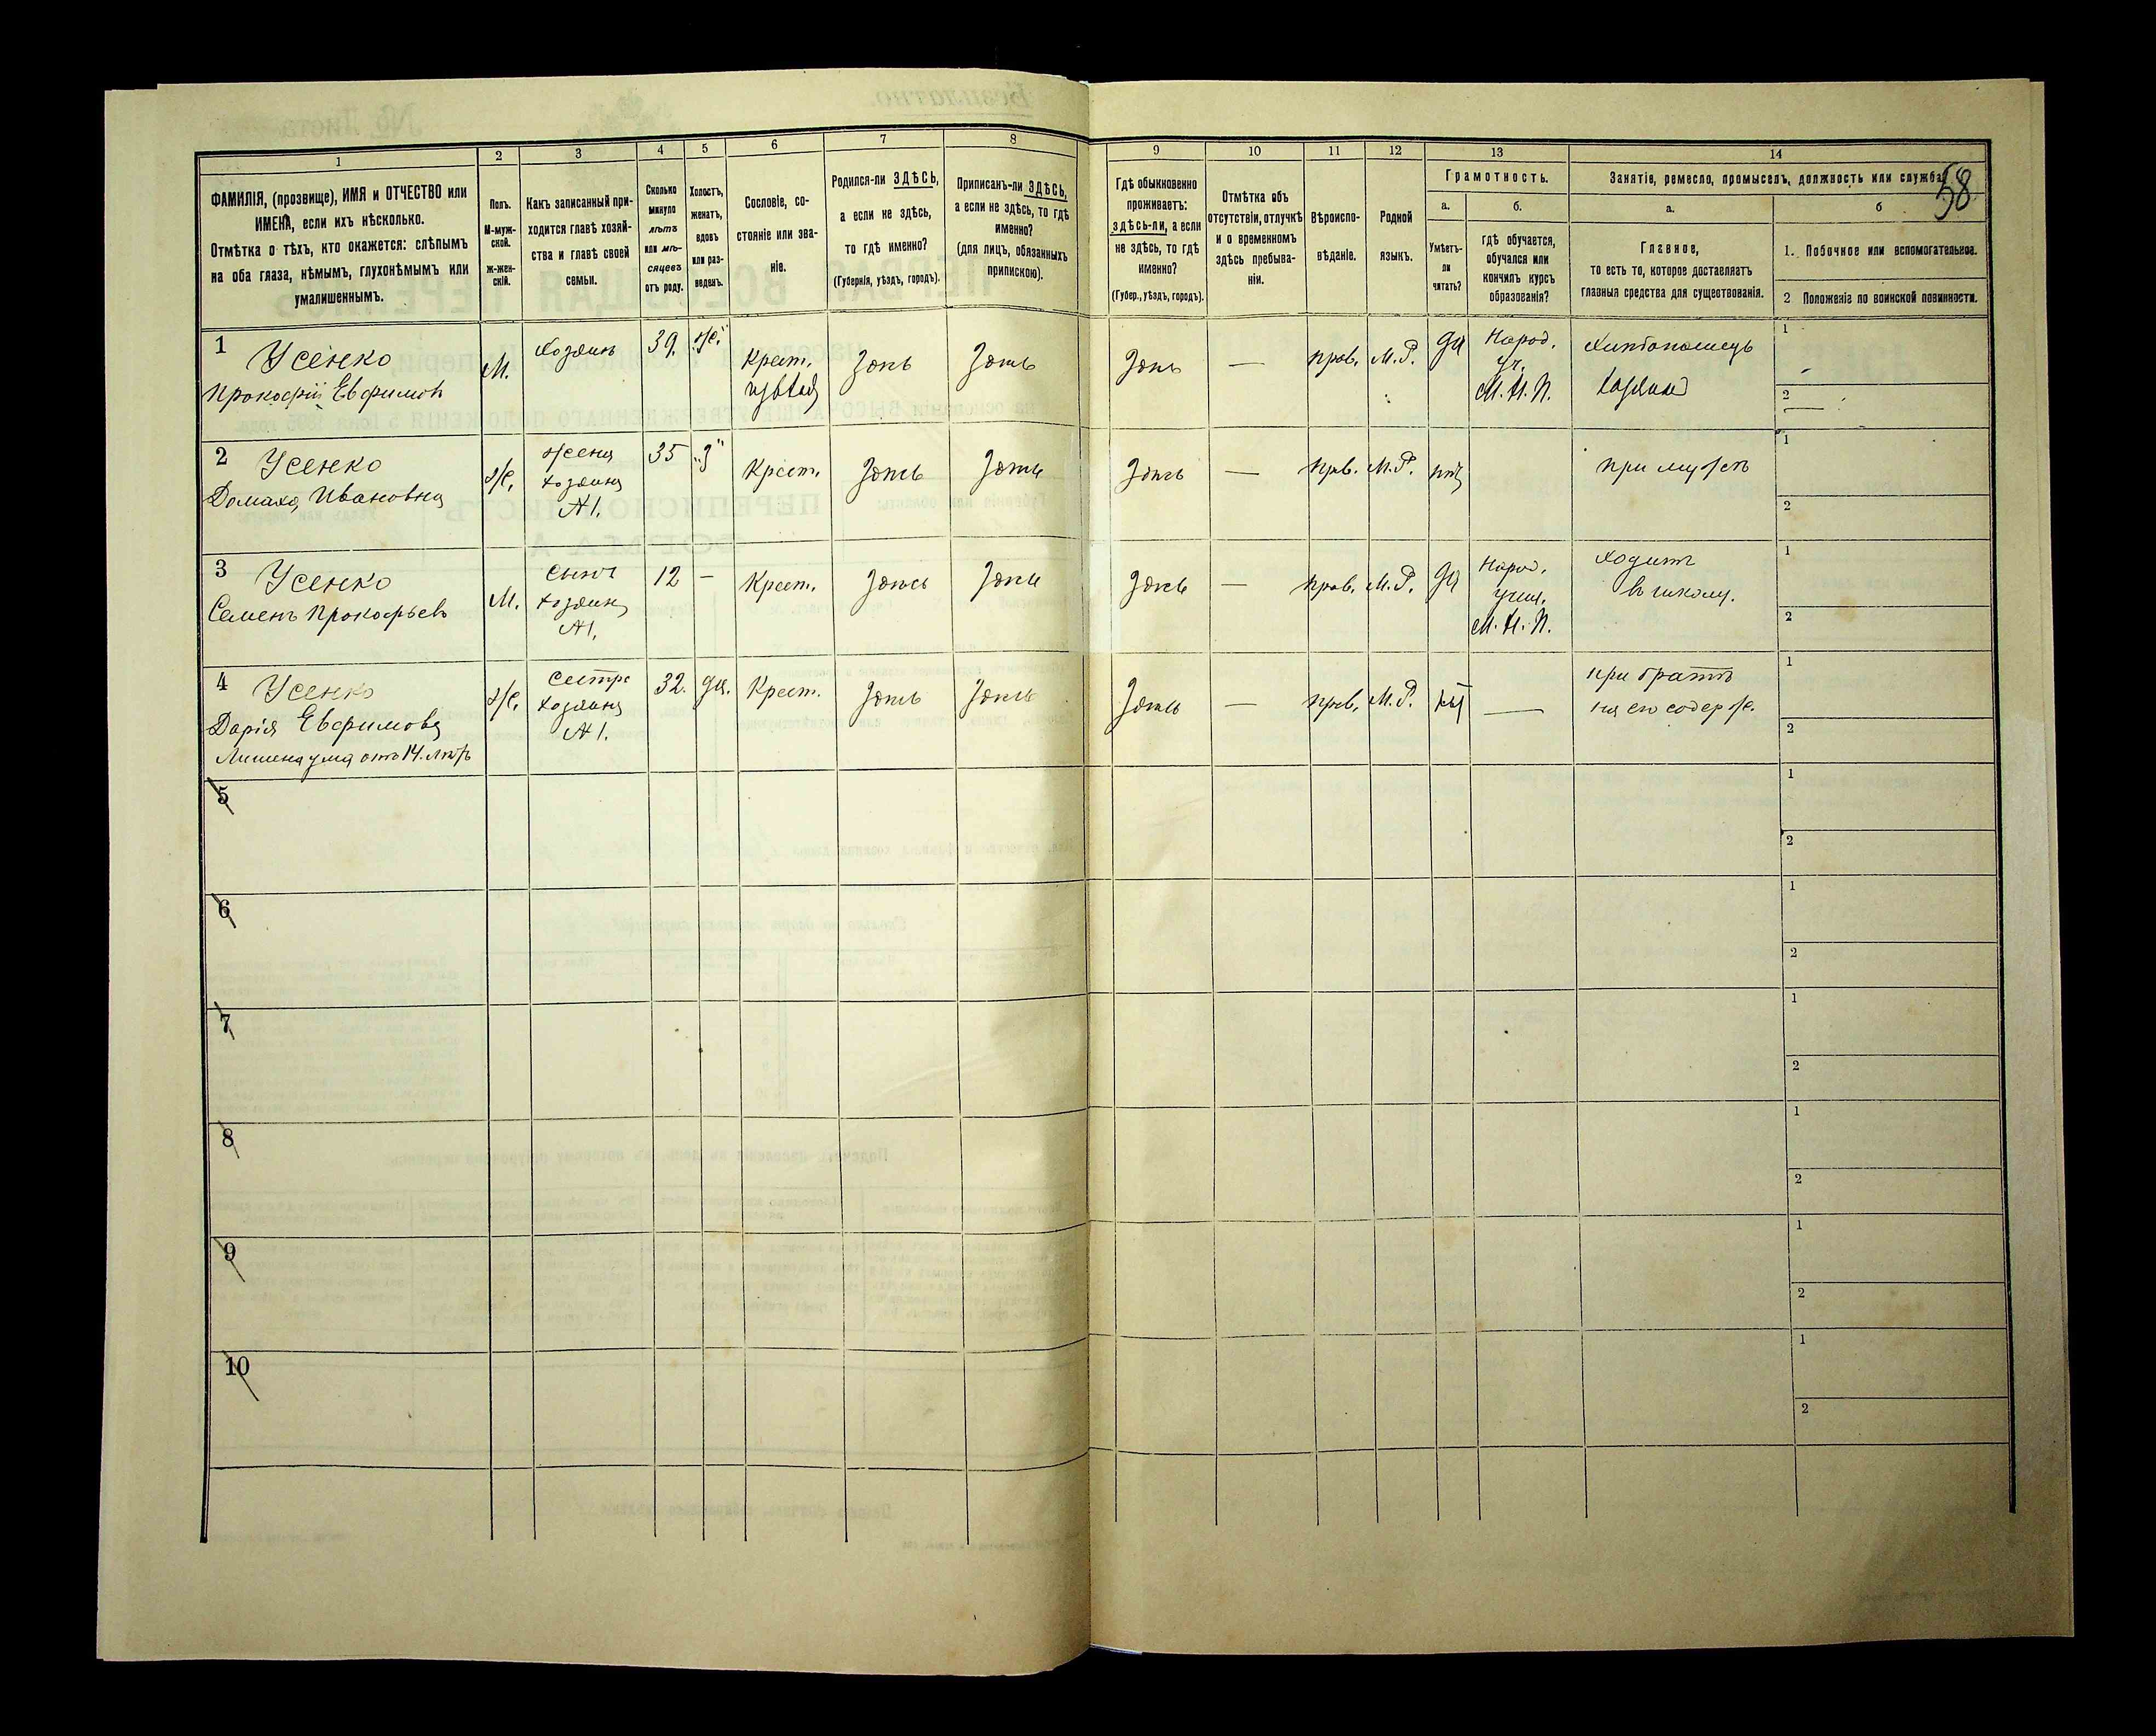 58
1
2
3
4
5
6
7
8
9
10
11
12
13
14
ФАМИЛІЯ, (прозвище), ИМЯ и ОТЧЕСТВО или
ИМЕНА, если ихъ нѣсколько.
Отмѣтка о тѣхъ, кто окажется: слѣпымъ
на оба глаза, нѣмымъ, глухонѣмымъ или
умалишеннымъ.
Полъ.
М-муж-
ской.
Ж-жен-
скій.
Какъ записанный при-
ходится главѣ хозяй-
ства и главѣ своей
семьи.
Сколько
минуло
лѣтъ
или мѣ-
сяцевъ
отъ роду.
Холостъ,
женатъ,
вдовъ
или раз-
веденъ.
Сословіе, со-
стояніе или зва-
ніе.
Родился-ли ЗДѢСЬ,
а если не здѣсь,
то гдѣ именно?
(Губернія, уѣздъ, городъ).
Приписанъ-ли ЗДѢСЬ,
а если не здѣсь, то гдѣ
именно?
(для лицъ, обязанныхъ
припискою).
Гдѣ обыкновенно
проживаетъ:
здѣсь-ли, а если
не здѣсь, то гдѣ
именно?
(Губер., уѣздъ, городъ).
Отмѣтка объ
отсутствіи, отлучкѣ
и о временномъ
здѣсь пребыва-
ніи.
Вѣроиспо-
вѣданіе.
Родной
языкъ.
Грамотность.
а.
Умѣетъ-
ли
читать?
б.
Гдѣ обучается,
обучался или
кончилъ курсъ
образованія?
Занятіе, ремесло, промыселъ, должность или служба.
а.
Главное,
то есть то, которое доставляетъ
главныя средства для существованія.
б
1. Побочное или вспомогательное.
2 Положеніе по воинской повинности.
1
Усенко
Прокофій Евфимовъ
М.
Хозяинъ
39.
Ж.
Крест.
Здѣсь
Здѣсь
Здѣсь
—
прав.
М.Р.
да
Народ.
уч.
М.Н.П.
Хлѣбопашецъ
хозяинъ
1
2
—
2
Усенко
Домаха Ивановна
Ж.
жена
хозяина
№1.
35
З
Крест.
Здѣсь
Здѣсь
Здѣсь
—
прав.
М.Р.
нѣт
при мужѣ
1
2
3
Усенко
Семенъ Прокофьевъ
М.
сынъ
хозяина
№1.
12
—
Крест.
Здѣсь
Здѣсь
Здѣсь
—
прав.
М.Р.
да
Народ.
учил.
М.Н.П.
Ходитъ
въ школу.
1
2
4
Усенко
Дарія Евфимова
Лишена ума отъ 14. лѣтъ
Ж.
Сестра
хозяина
№1.
32.
Крест.
Здѣсь
Здѣсь
Здѣсь
—
прав.
М.Р.
нѣт
—
при братѣ
на его содерж.
1
2
5
1
2
6
1
2
7
1
2
8
1
2
9
1
2
10
1
2